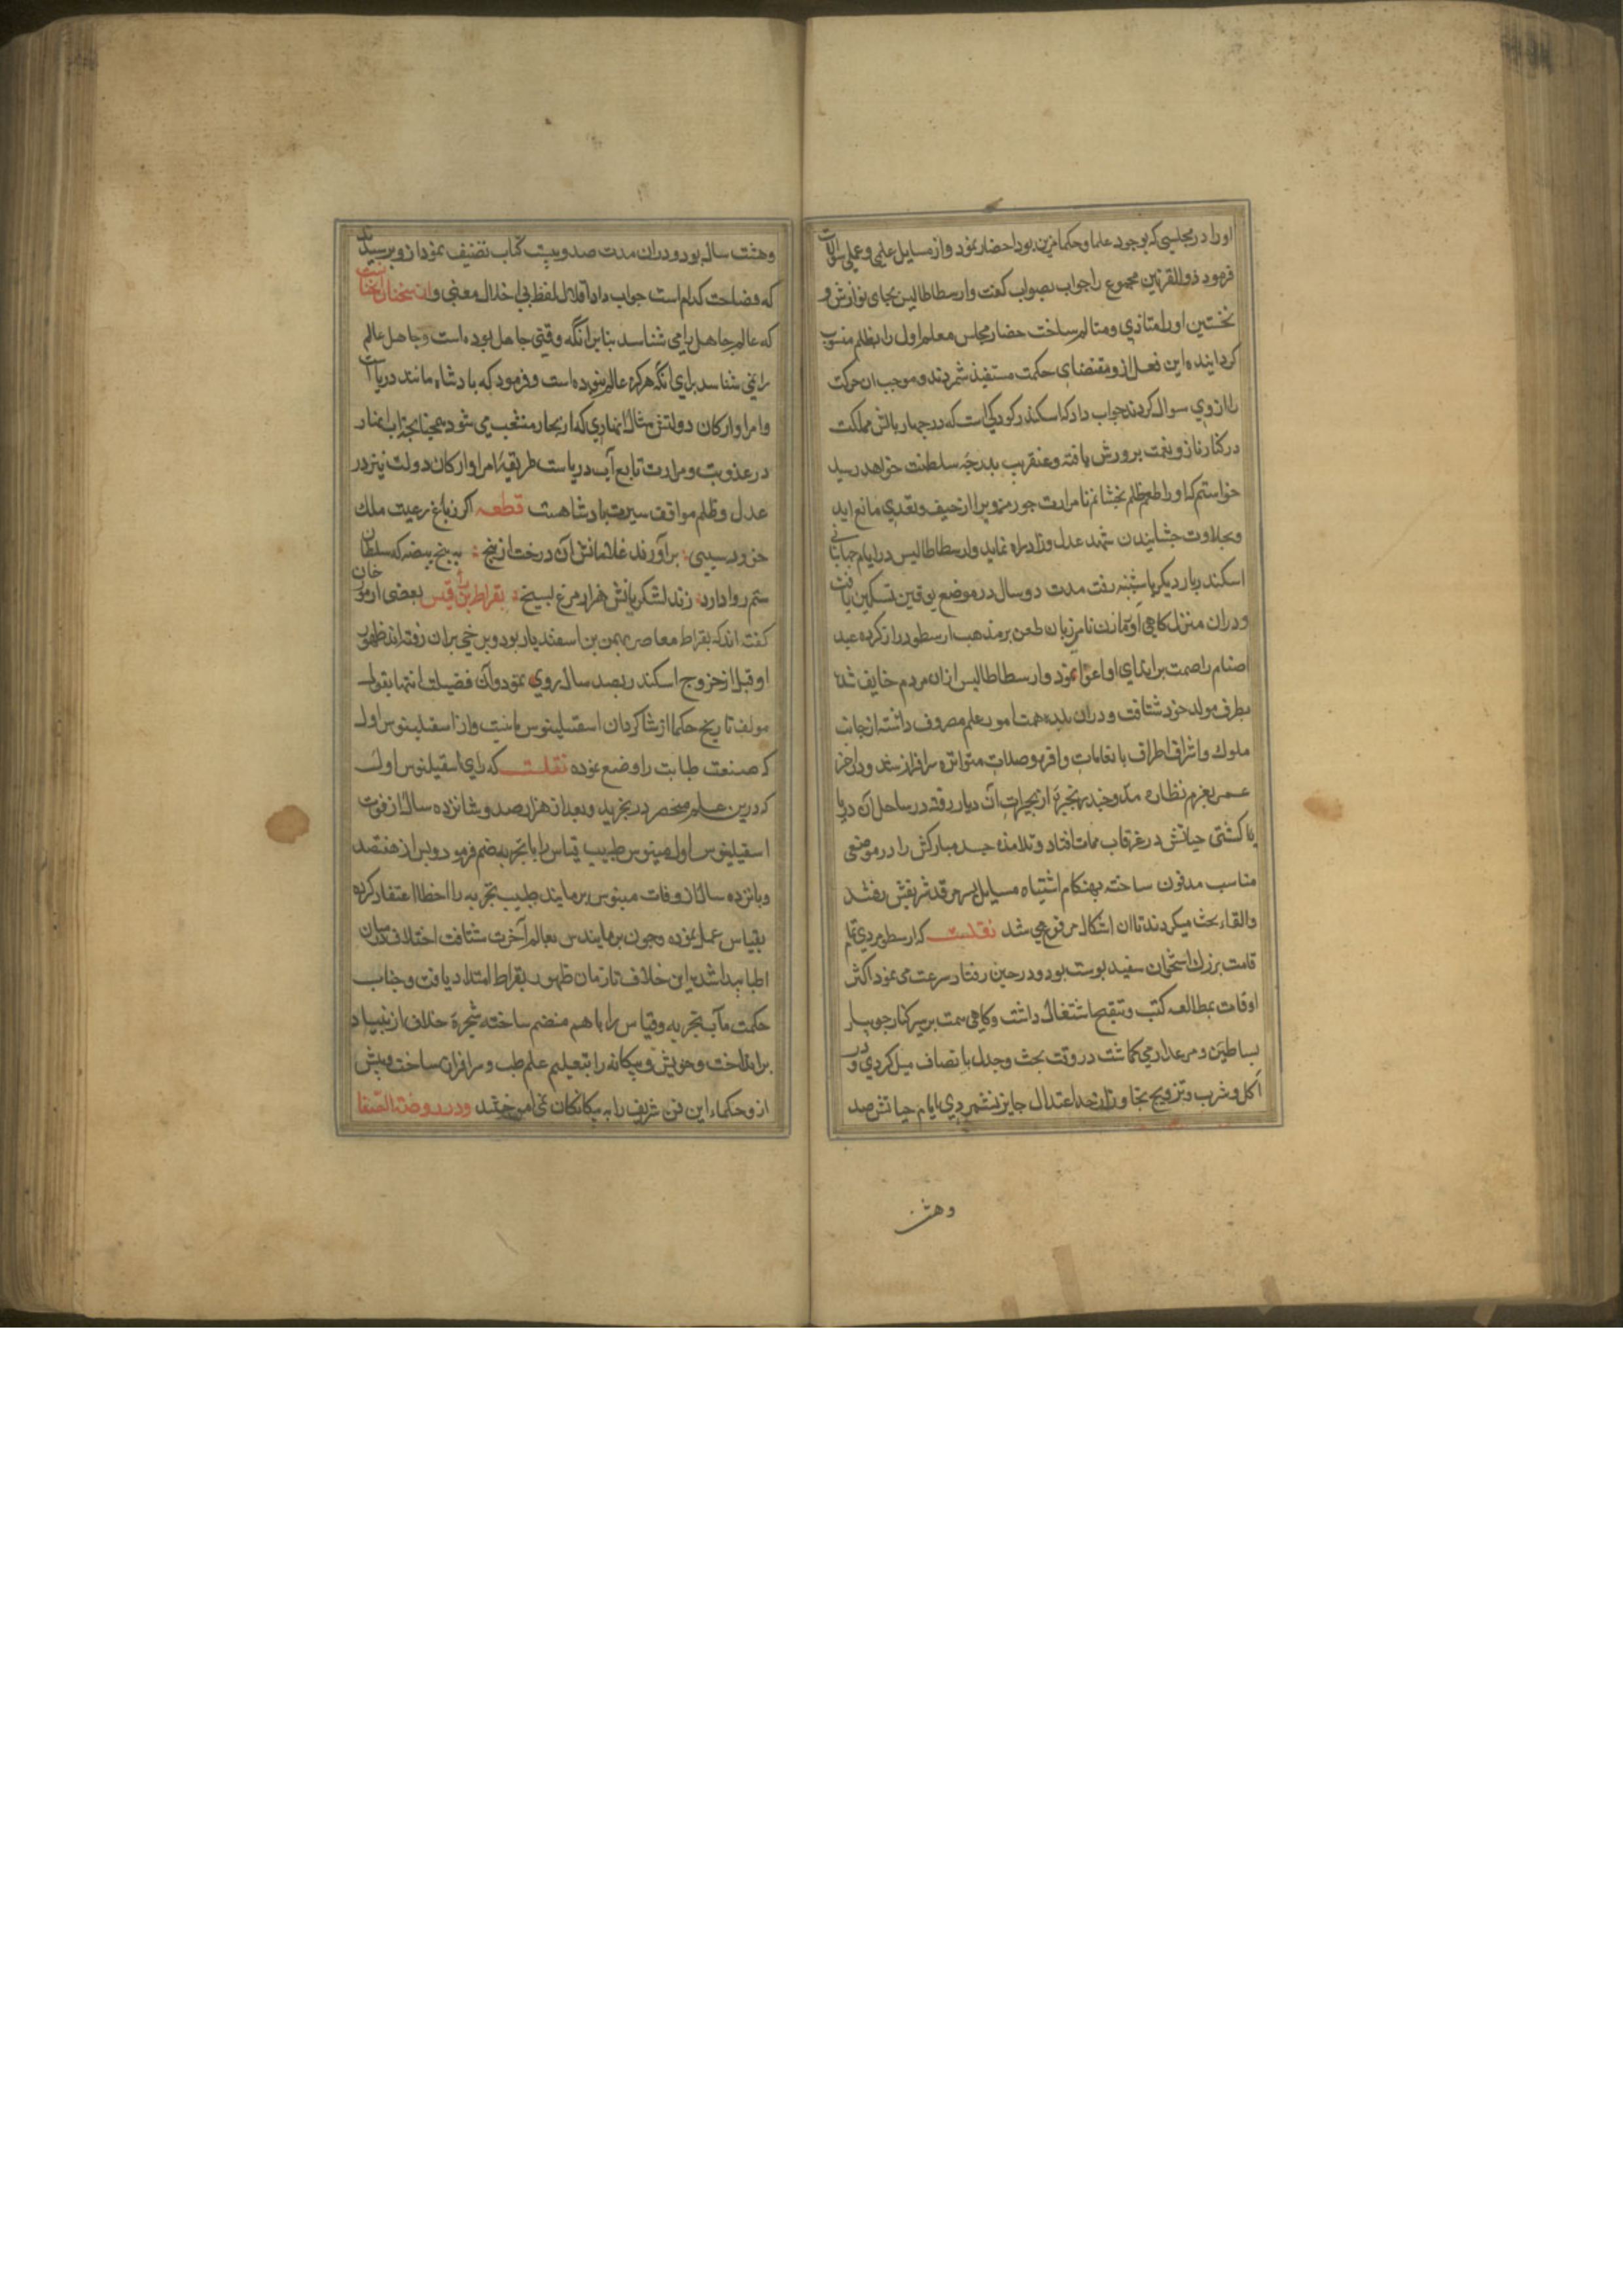 او را در مجلسی که بوجود علما و حکما مزین بود احضار نمود و از مسایل علمی و عملی سوالات
فرمود ذوالقرنین مجموع را جواب بصواب کفت و ارسطاطالیس بجای نوازش و
نخستین او را متاذی و متالم ساخت حضار مجلس معلم اول را بظلم منسوب
کردانیده این فعل از و مقتضای حکمت شمردند و موجب ان حرکت
را از وی سوال کردند جواب داد که اسکندر کودکی است که در چهار بالش مملکت
در کنار ناز و نعمت پرورش یافته و عنقریب بدرجه سلطنت خواهد رسید
خواستم که او را طعم ظلم بچشانم تا مرارت جور مزوبر از حیف و تعدی مانع اید
و بحلاوت چشانیدن شهد عدل و داد راه نماید و ارسطاطالیس در ایام جهانبانی
اسکندر بار دیکر باثینه رفت مدت دو سال در موضع لوقین تسکین یافت
و در ان منزل کاهن زبان طعن بر مذهب ارسطو دراز کرده عبد
اصنام را بر ایذای او اغرا نمود و ارسطاطالیس از ان مردم خایف شده
بطرف مولد خود شتافت و در ان بلده همت بامور علم مصروف داشته از جانب
ملوک و اشراف اطراف بانعامات وافره و صلات متواتره سرافراز شد و در اخر
عمر بعزم نظاره مد و جزر بحیرهٔ از بحیرات آن دیار رفته در ساحل آن دریا
کشتی حیاتش در غرقاب ممات افتاد و تلامذه جسد مبارکش را در موضعی
مناسب مدفون ساخته بهنکام اشتباه مسایل بسر مرقد شریفش رفتند
و القاء بحث میکردند تا ان اشکال مرفوع می شد نقلست که ارسطو مردی تمام
قامت بزرك استخوان سفید پوست بود و در حین رفتار سرعت می نمود اکثر
اوقات بمطالعه کتب و تنقیح اشتغال داشت و کاهی همت بر سیر کنار جویبار
بساطین و مرغزار می کماشت در وقت بحث و جدل بانصاف میل کردی و در
اکل و شرب و تزویج تجاوز از حد اعتدال جایز نشمردی ایام حیاتش صد
وهشت
وهشت سال بود و در ان مدت صد و بیست کتاب تصنیف نمود از و پرسیدند
که فصاحت کدام است جواب داد اقلال لفظ بی اخلال معنی و از سخنان انجناست
که عالم جاهل را می شناسد بنابر انکه وقتی جاهل بوده است و جاهل عالم
را نمی شناسد برای انکه هرکز عالم نبوده است و فرمود که بادشاه مانند دریاست
و امرا و ارکان دولتش مثال انهاری که از بحار منشعب می شود همچنانچه اب انهار
در عذوبت و مرارت تابع آب دریاست طریقهٔ امرا و ارکان دولت نیز در
عدل و ظلم موافق سیرت بادشاهست قطعه اکر ز باغ رعیت ملك
خورد سیبی برآورند غلامانش آن درخت از بیخ به پنج بیضه که سلطان
ستم روا دارد زند لشکریانش هزار مرغ بسیخ بقراط بن براقس بعضی از مورخان
کفته اند که بقراط معاصر بهمن بن اسفندیار بود و برخی بران رفته اند ظهور
او قبل از خروج اسکندر بصد سال روی نمود و آن فضیلت انتما بقول
مولف تاریخ حکما از شاکردان اسقلینوس ثانیست و از اسقلینوس اول
که صنعت طبابت را وضع نموده نقلست که رای اسقیلنوس اول
که درین علم منحصر در تجربه و بعد از هزار صد و شانزده سال از فوت
اسقیلینوس اول مینوس طبیب قیاس را با تجربه ضم فرمود و پس از هفتصد
و پانزده سال از وفات مینوس برمایندس طبیب تجربه را خطا اعتقاد کرده
بقیاس عمل نموده و چون برمایندس بعالم آخرت شتافت اختلاف در میان
اطبا پیدا شد این خلاف تا زمان ظهور بقراط امتداد یافت و جناب
حکمت مآب تجربه و قیاس را باهم منضم ساخته شجرهٔ خلاف از بنیاد
برانداخت و خویش و بیکانه را بتعلیم علم طب سرافراز ساخت و پیش
از و حکماء این فن شریف را به بیکانکان نمی اموختند و در روضة الصفا